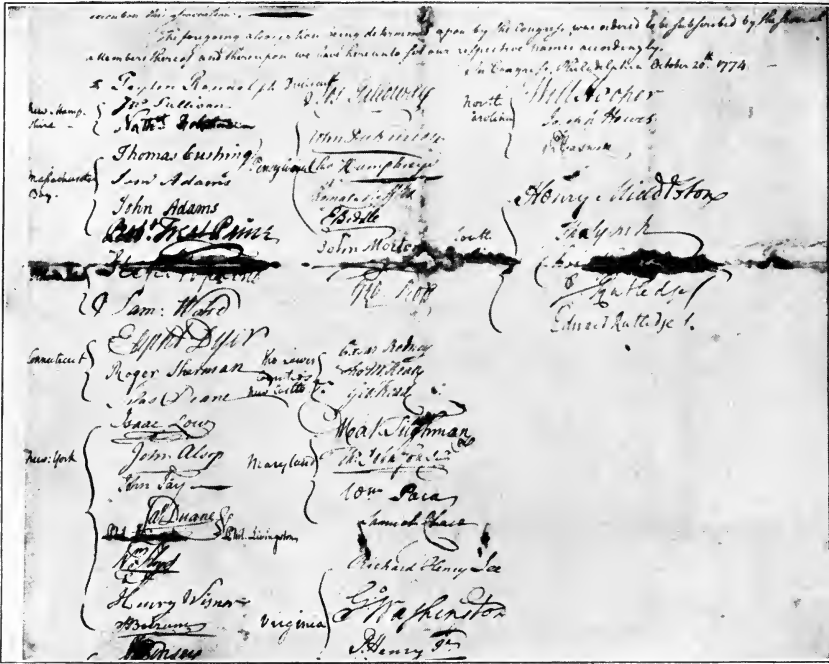 execution this association.
The foregoing association being determined upon by the Congress, was ordered to be subscribed by the several
Members thereof and thereupon we have hereunto set our respective names accordingly.
In Congress, Philadelphia October 20th. 1774.
Peyton Randolph President
New-Hamp-
shire
Jno. Sullivan
Nath
Massachusetts
Bay.
Thomas Cushing
Sam Adams
John Adams
Robt. Treat Paine
Sam: Ward
Connecticut
Elipht Dyer
Roger Sherman
Silas Deane
New-York
Isaac Low
John Alsop
John Jay
Jas. Duane
Phil. Livingston
Wm. Floyd
Henry Wisner
S: Boerum
Jos. Galloway
John Dickinson
Chas Humphreys
E Biddle
John Morton
Geo: Ross
the Lower
Counties
New Castle
Caesar Rodney
Tho M:Kean
Geo Read
Maryland
Mat Tilghman
Ths. Johnson Junr
Wm Paca
Samuel Chase
Virginia
Richard Henry Lee
Go Washington
P. Henry Jr.
North
Carolina
Will Hooper
Joseph Hewes
R Caswell
South
Henry Middleton
Tho Lynch
J Rutledge
Edward Rutledge